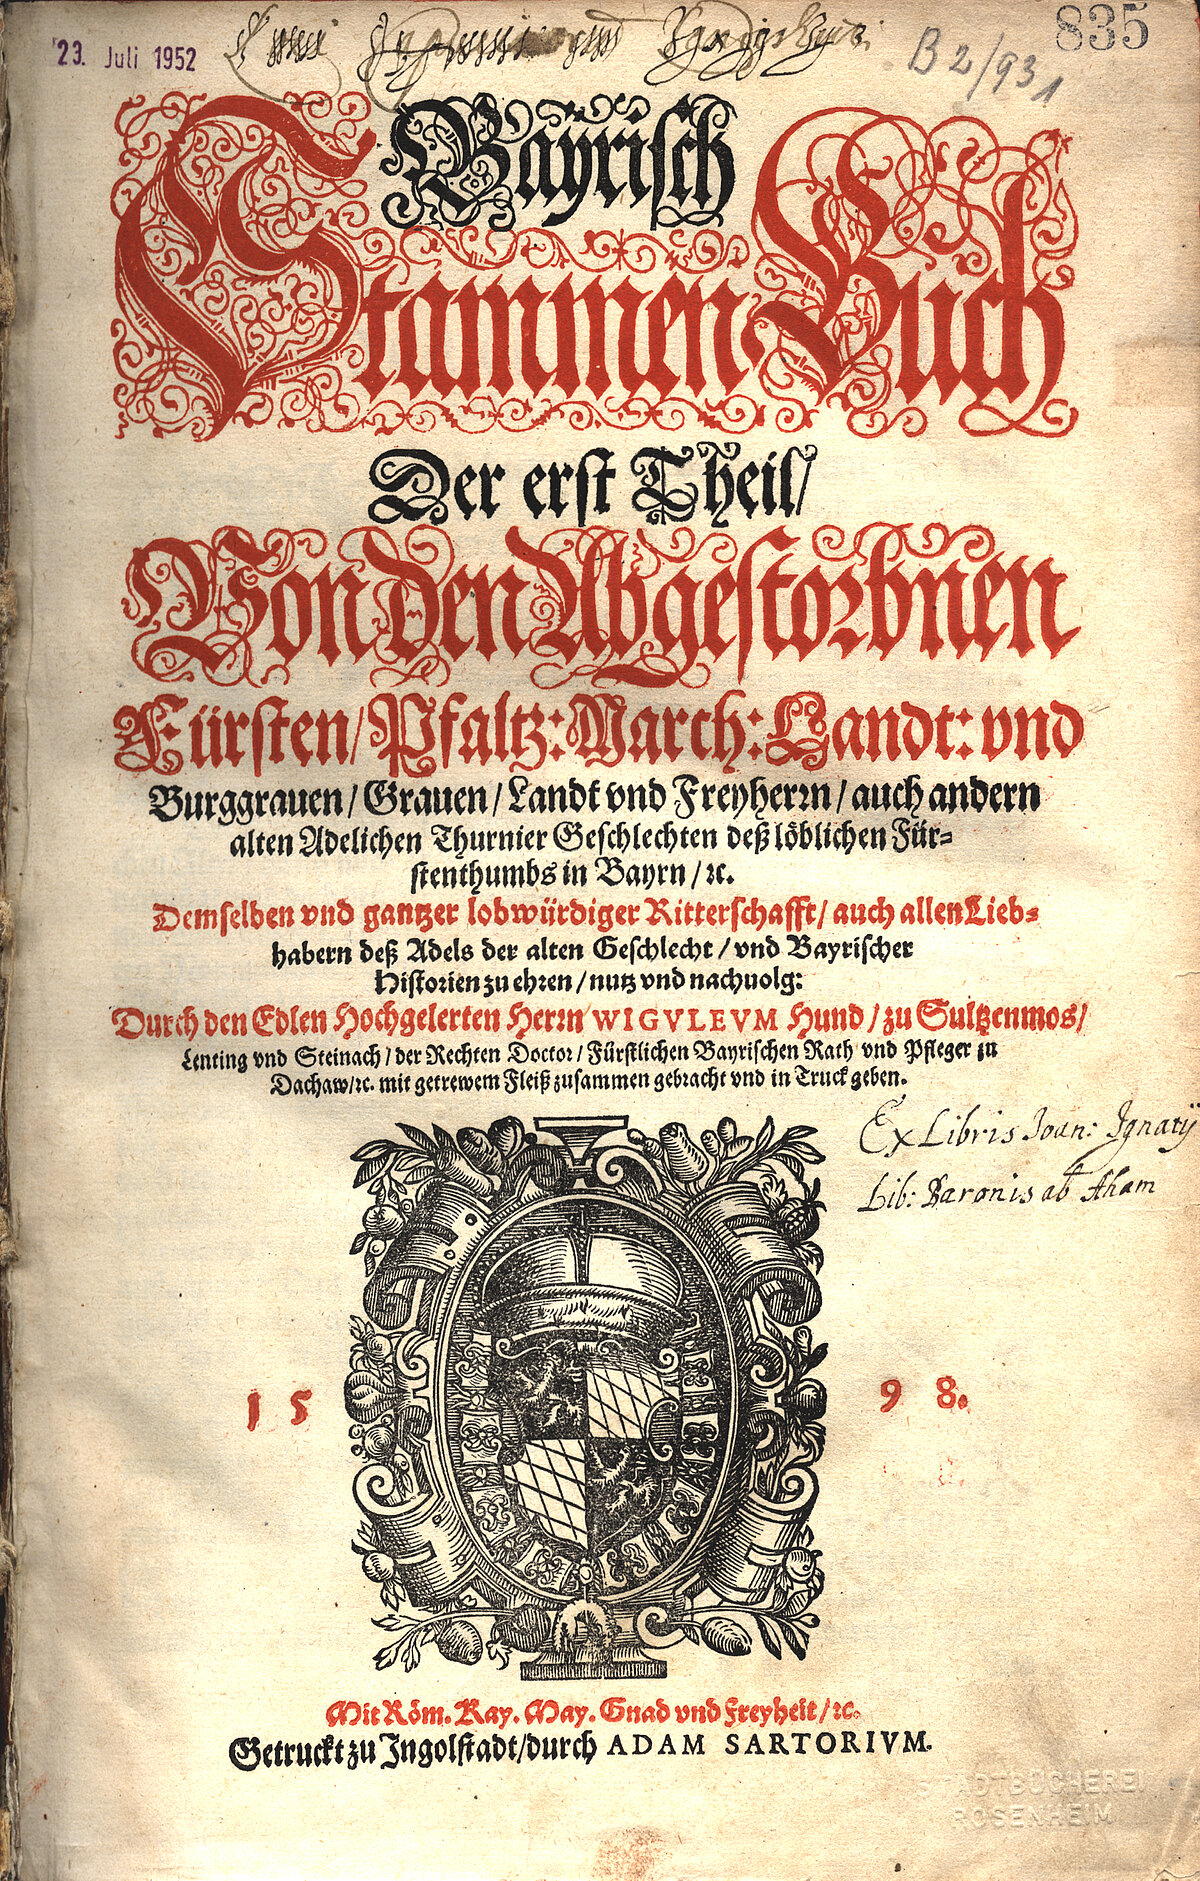 835
23. Juli 1952
B 2/93 1
Bayrisch
Stammen Buch
Der erst Theil/
Von den Abgestorbnen
Fürsten/ Pfaltz: March: Landt: vnd
Burggrauen/ Grauen/ Landt vnd Freyherrn/ auch andern
alten Adelichen Thurnier Geschlechten deß löblichen Für-
stenthumbs in Bayrn/ ꝛc.
Demselben vnd gantzer lobwürdiger Ritterschafft/ auch allen Lieb-
habern deß Adels der alten Geschlecht/ vnd Bayrischer
Historien zu ehren/ nutz vnd nachuolg:
Durch den Edlen Hochgelerten Herrn WIGVLEVM Hund/ zu Sultzenmos/
Lenting vnd Steinach/ der Rechten Doctor/ Fürstlichen Bayrischen Rath vnd Pfleger zu
Dachaw/ ꝛc. mit getrewem Fleiß zusammen gebracht vnd in Truck geben.
Ex Libris Joan: Ignatij
Lib: Baronis ab Aham
15 98.
Mit Röm. Kay. May. Gnad vnd Freyheit/ ꝛc.
Getruckt zu Ingolstadt/ durch ADAM SARTORIVM.
STADTBÜCHEREI
ROSENHEIM